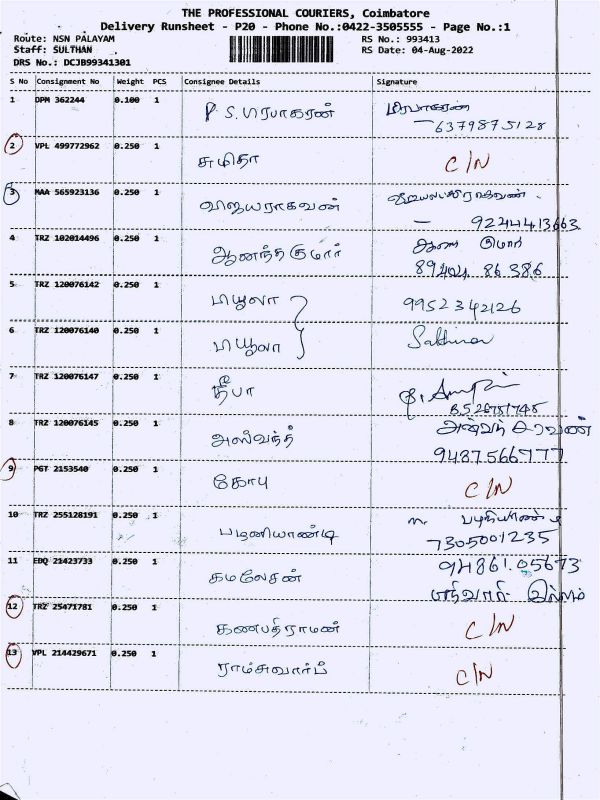 THE PROFESSIONAL COURIERS, Coimbatore
Delivery Runsheet - P20 - Phone No.:0422-3505555 - Page No.:1
Route: NSN PALAYAM
RS No.: 993413
Staff: SULTHAN
RS Date: 04-Aug-2022
DRS No.: DCJB99341301
S No Consignment No Weight PCS Consignee Details Signature
1 DPM 362244 0.100 1 P.S.பிரபாகரன் பிரபாகரன்
6379875128
2 VPL 499772962 0.250 1 சுமிதா C/N
3 MAA 565923136 0.250 1 விஜயராகவன்
9244413663
4 TRZ 102014496 0.250 1 ஆனந்தகுமார் குமார்
86386
5 TRZ 120076142 0.250 1 மயூலா 9952342126
6 TRZ 120076140 0.250 1 மயூலா
7 TRZ 120076147 0.250 1 தீபா
8 TRZ 120076145 0.250 1 அஸ்வந்த் சரவண்
9487566777
9 PGT 2153540 0.250 1 கோபு C/N
10 TRZ 255128191 0.250 1 பழனியாண்டி m. பழனியாண்டி
7305001235
11 EDQ 21423733 0.250 1 கமலேசன் 94861.05673
இல்லம்
12 TRZ 25471781 0.250 1 கணபதிராமன் C/N
13 VPL 214429671 0.250 1 ராம்சுவார்ப் C/N